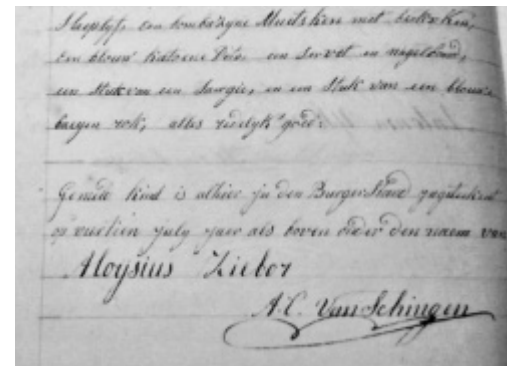 Slaeplyf, een bombazyne Mutsken met
een blouw katoene een Servet en
een Stuk van een Sargie, en een Stuk van een blouwe
baeyen rok, alles redelyk goed.
Gemelde kind is alhier in den Burgerstand
op veertien july jaer als boven onder den naem van
Aloysius Ziebor
A.C. Van Schingen